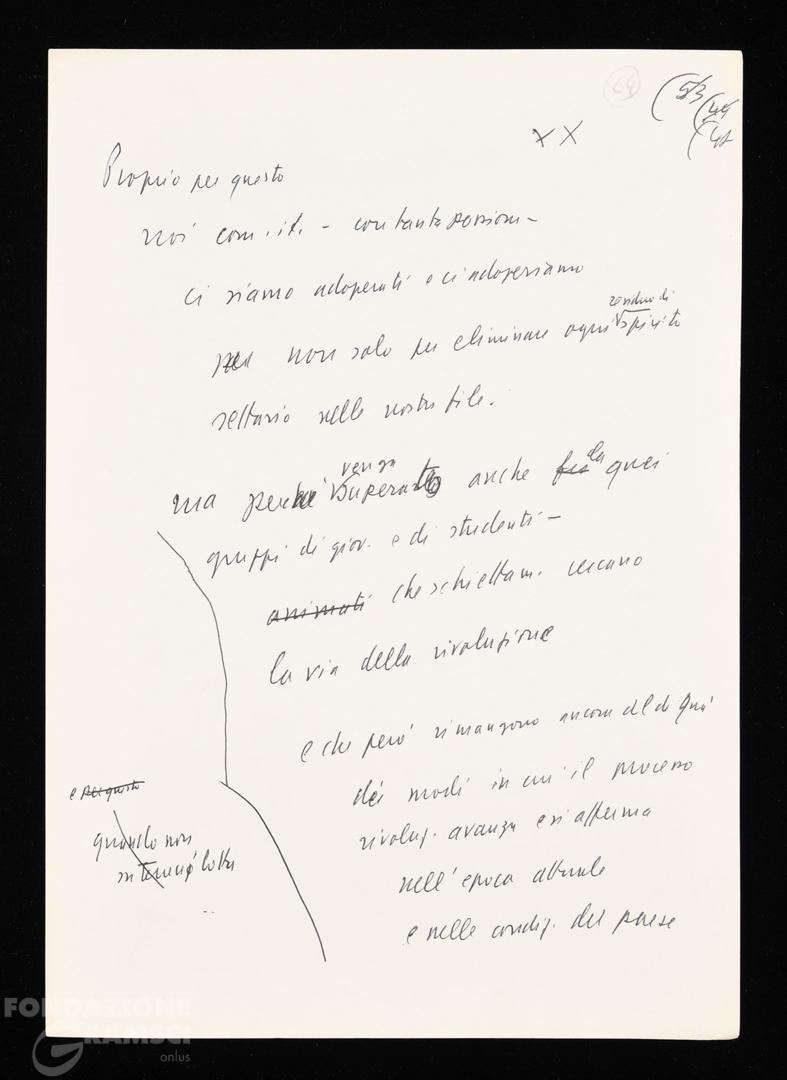 64
(53
(44
(48
XX
Proprio per questo
noi com. it. - con tanta passione -
ci siamo adoperati e ci adoperiamo
residuo di
per non solo per eliminare ogni spirito
settario nelle nostre file.
venga da
ma perché superato anche quei
gruppi di giov. e di studenti -
animati che schiettam. cercano
la via della rivoluzione
e che però rimangono ancora al di quà
dei modi in cui il processo
rivoluz. avanza e si afferma
nell'epoca attuale
e nelle condiz. del paese
e per questo
quando non
lotta
FONDAZIONE
GRAMSCI
onlus